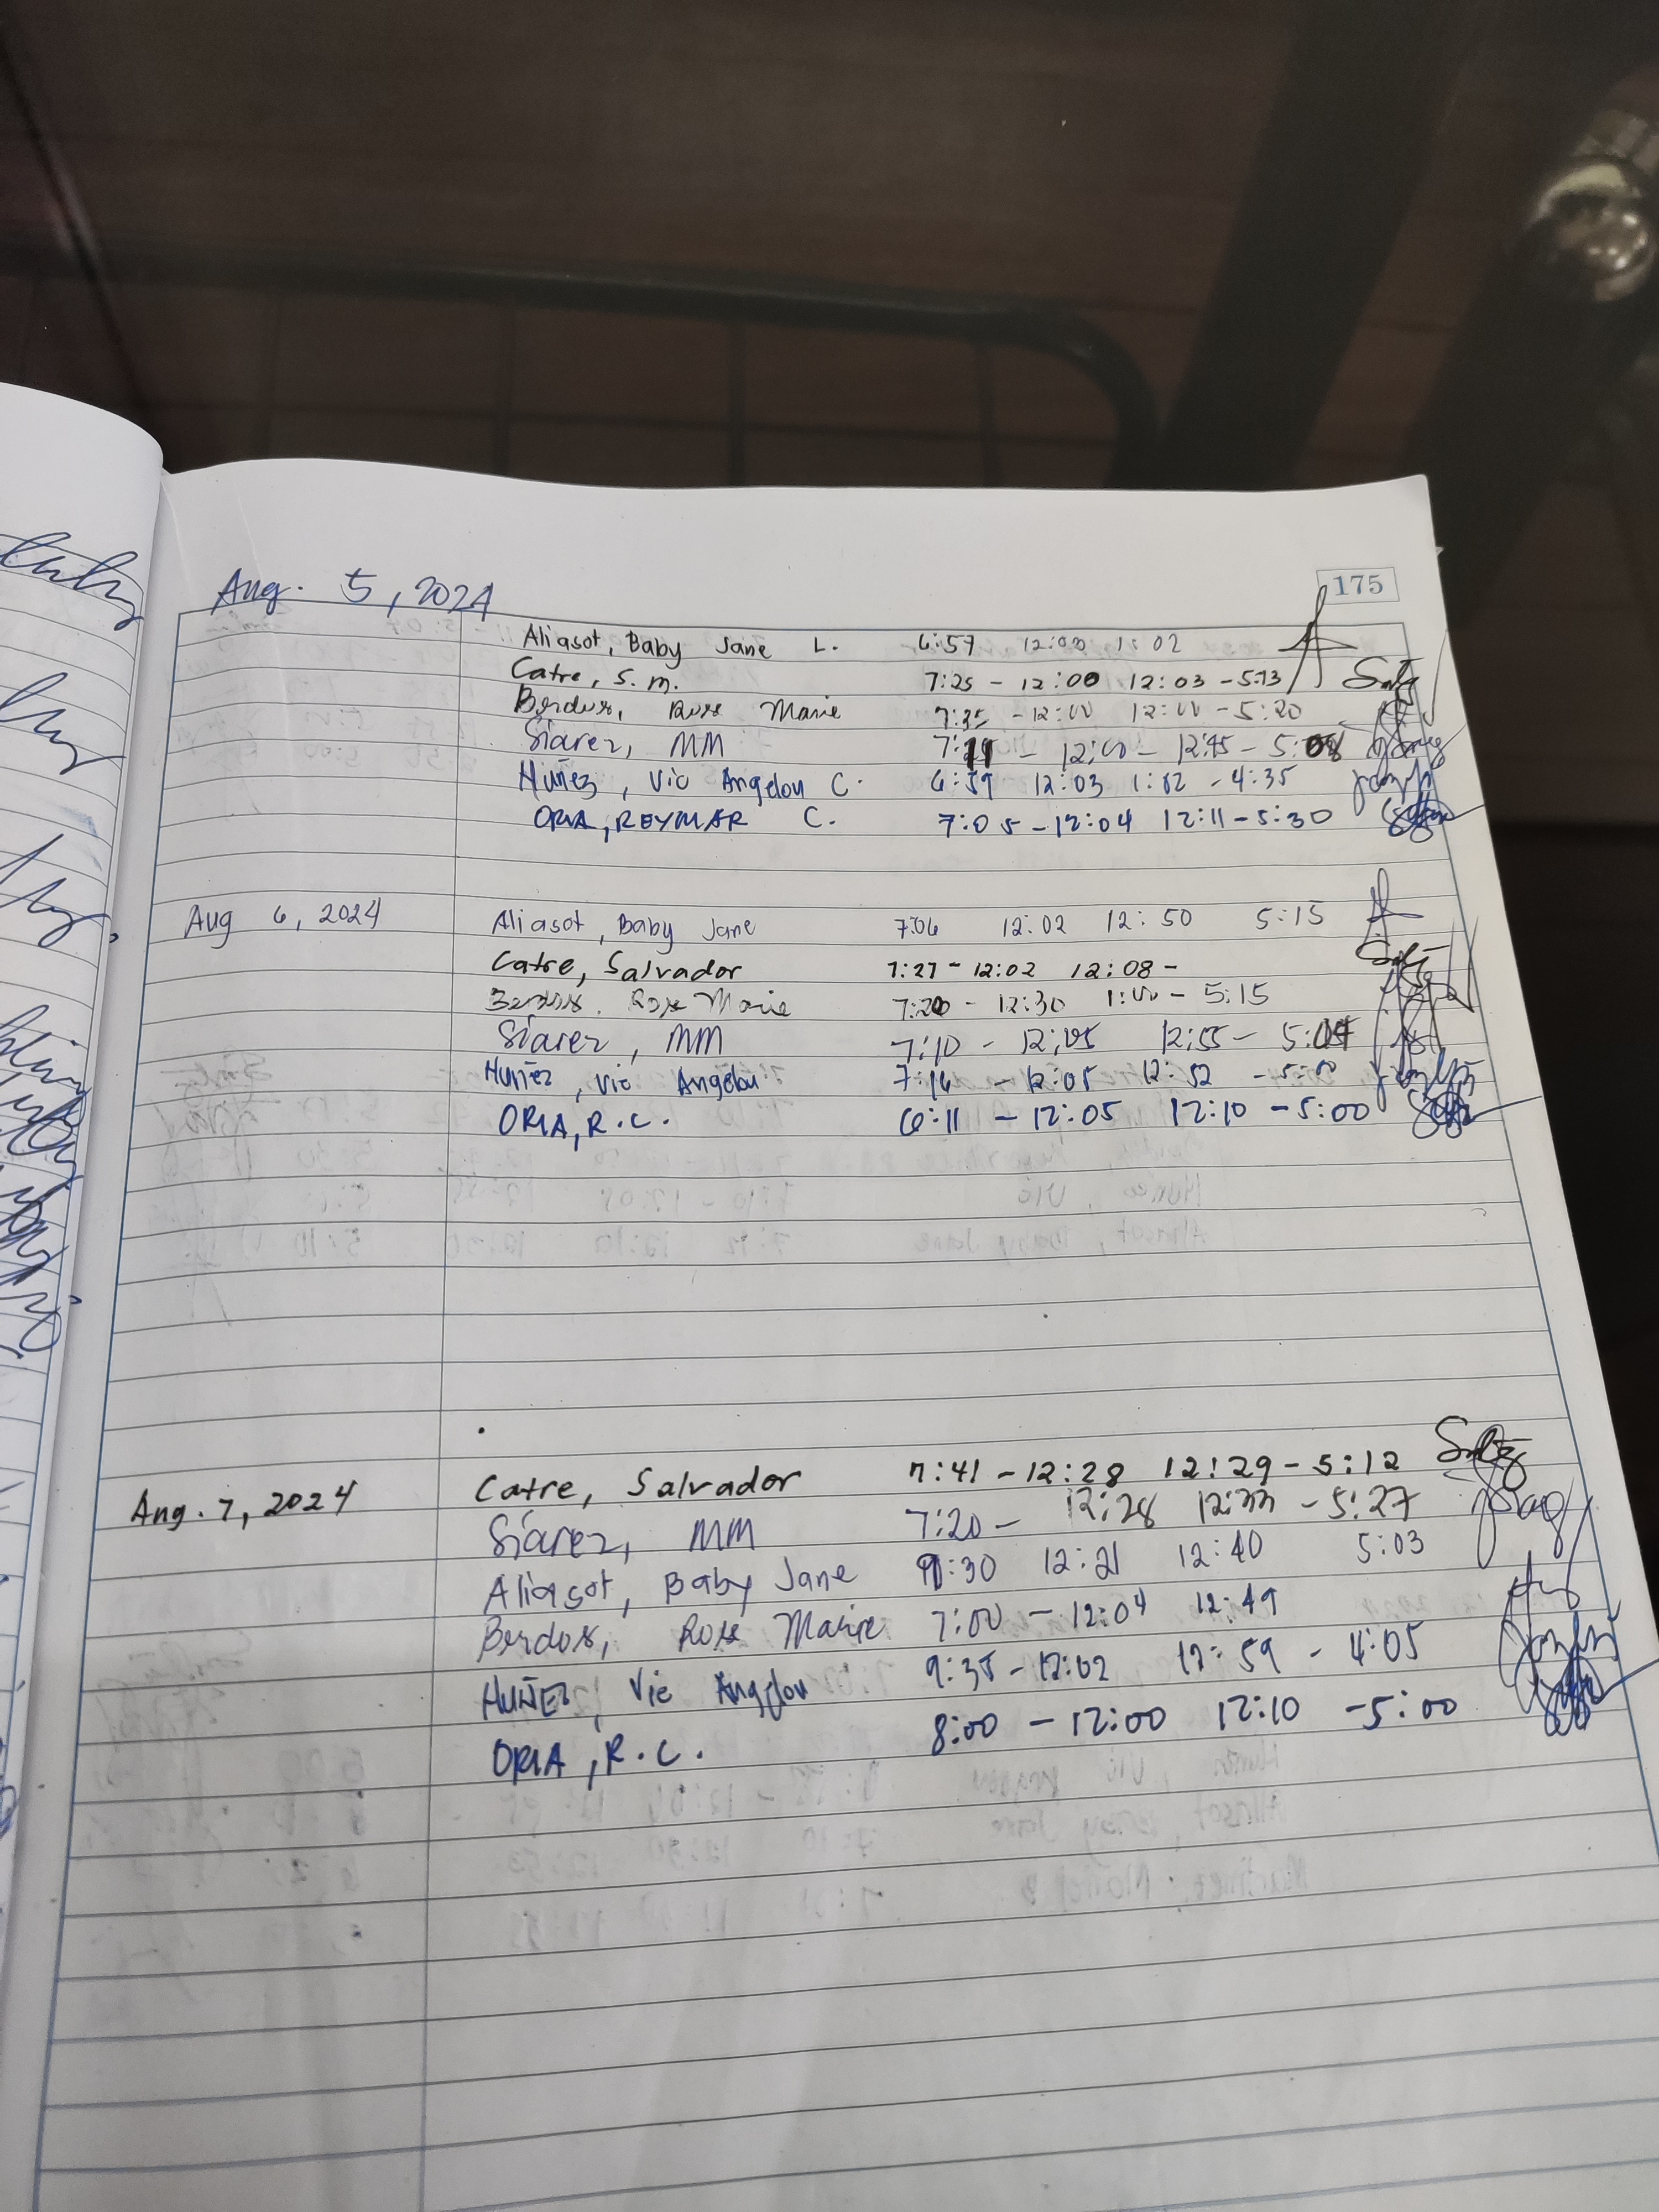 175
Aug. 5, 2024
Aliasot, Baby Jane L. 6:57 12:00 1:02
Catre, S. M. 7:25 - 12:00 12:03 - 5:13
Berdos, Rose Marie 7:35 - 12:00 12:00 - 5:20
Siarez, MM - 12:00 - 12:45 - 5:08
Huñez, Vic Angelou C. 6:59 12:03 1:02 - 4:35
ORIA, REYMAR C. 7:05 - 12:04 12:11 - 5:30
Aug 6, 2024 Aliasot, Baby Jane 7:06 12:02 12:50 5:15
Catre, Salvador 7:27 - 12:02 12:08 -
Berdos, Rose Marie 7:20 - 12:30 1:00 - 5:15
Siarez, MM 7:10 - 12:05 12:55 -
Huñez, Vic Angelou 7:16 - 12:05 12:52 - 5:00
ORIA, R.C. 6:11 - 12:05 12:10 - 5:00
Aug. 7, 2024 Catre, Salvador 7:41 - 12:28 12:29 - 5:12
Siarez, MM 7:20 - 12:28 12:33 - 5:27
Aliasot, Baby Jane 12:21 12:40 5:03
Berdos, Rose Marie 7:00 - 12:04 12:49
HUÑEZ, Vic Angelou 9:35 - 12:02 12:59 - 4:05
ORIA, R.C. 8:00 - 12:00 12:10 - 5:00